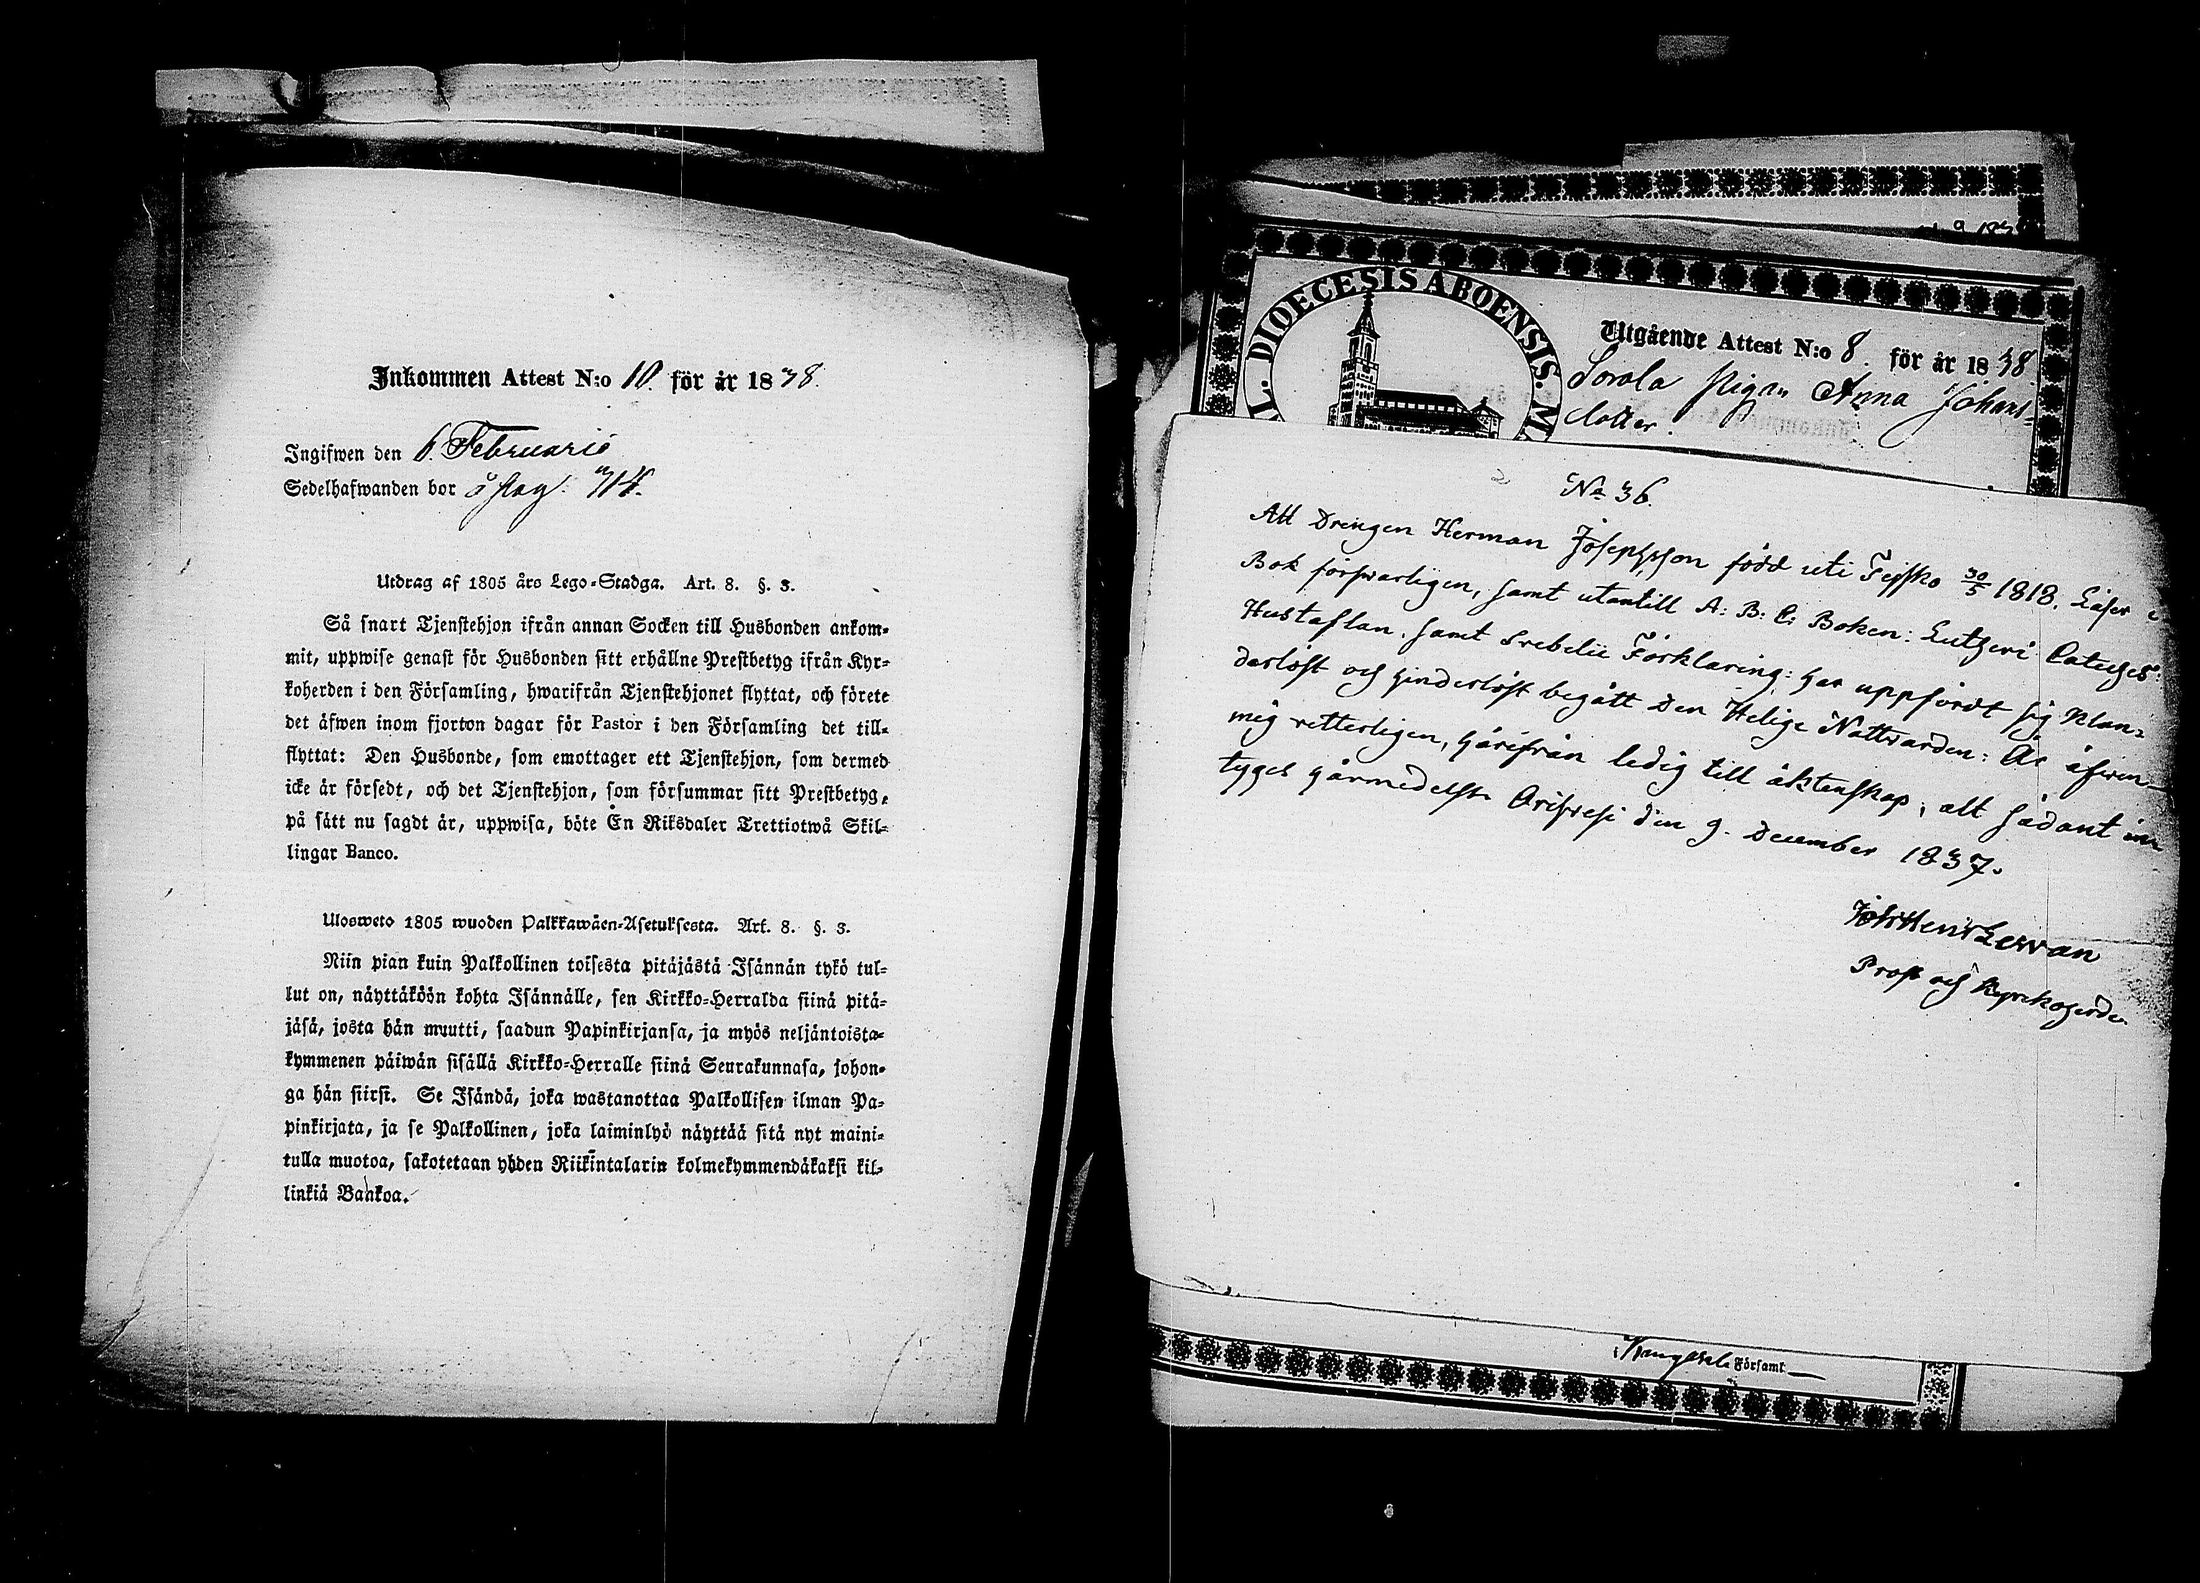 Inkommen Attest N:o 10. för år 1838.
Ingifwen den 6. Februarie
Sedelhafwanden bor
Utdrag af 1805 års Lego-Stadga. Art. 8. §. 3.
Så snart Tjenstehjon ifrån annan Socken till Husbonden ankom-
mit, uppwise genast för Husbonden sitt erhållne Prestbetyg ifrån Kyr-
koherden i den Församling, hwarifrån Tjenstehjonet flyttat, och förete
det äfwen inom fjorton dagar för Pastor i den Församling det till-
flyttat: Den Husbonde, som emottager ett Tjenstehjon, som dermed
icke är försedt, och det Tjenstehjon, som försummar sitt Prestbetyg,
på sätt nu sagdt är, uppwisa, böte En Riksdaler Trettiotwå Skil-
lingar Banco.
Ulosweto 1805 wuoden Palkkawäen-Asetuksesta. Art. 8. §. 3.
Niin pian kuin Palkollinen toisesta pitäjästä Isännän tykö tul-
lut on, näyttäköön kohta Isännälle, sen Kirkko-Herralda siinä pitä-
jäsä, josta hän muutti, saadun Papinkirjansa, ja myös neljäntoista-
kymmenen päiwän sisällä Kirkko-Herralle siinä Seurakunnasa, johon-
ga hän siirsi. Se Isändä, joka wastanottaa Palkollisen ilman Pa-
pinkirjata, ja se Palkollinen, joka laiminlyö näyttää sitä nyt maini-
tulla muotoa, sakotetaan yhden Riikintalarin kolmekymmendäkaksi kil-
linkiä Bankoa.
DIOECESIS ABOENSIS. M
Utgående Attest N:o 8. för år 1838
Sorola Pigan Anna Johans-
dotter.
No 36.
Att Drengen Herman Josephsson född uti Tejsko 30/5 1818. Läser i
Bok förswarligen, samt utantill A: B: C: Boken: Lutheri Cateches:
Hustaflan, samt Svebelii Förklaring: har uppfördt sig klan-
derlöst och hinderlöst begått Den Helige Nattvarden: Är äfven
mig vetterligen, härifrån ledig till äktenskap, alt sådant
tyges härmedelst. Orifvesi den 9. December 1837.
Joh Henr Lervan
Prost och Kyrkoherde
Kangasala Församl